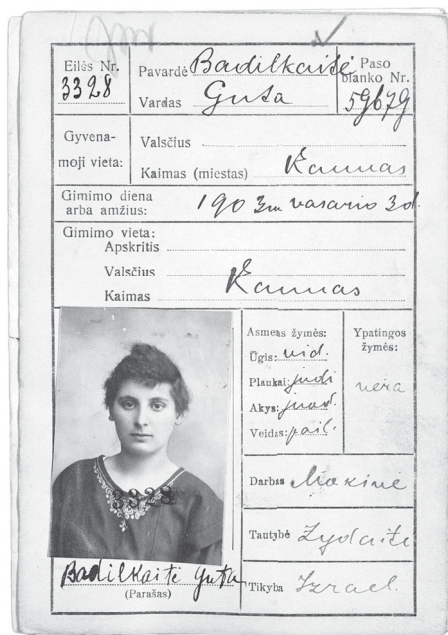 Eilės Nr. 3328
Pavardė Badilkaitė
Vardas Guta
Paso blanko Nr. 59679
Gyvenamoji vieta:
Valsčius
Kaimas (miestas) Kaunas
Gimimo diena arba amžius: 1903 m vasario 3 d.
Gimimo vieta:
Apskritis
Valsčius
Kaimas Kaunas
Asmens žymės:
Ūgis: vid.
Plaukai: judi
Akys: juod.
Veidas: pail.
Ypatingos žymės:
nėra
3328
Darbas Mokinė
Tautybė Žydaitė
Tikyba Izrael.
Badilkaitė Guta
(Parašas)